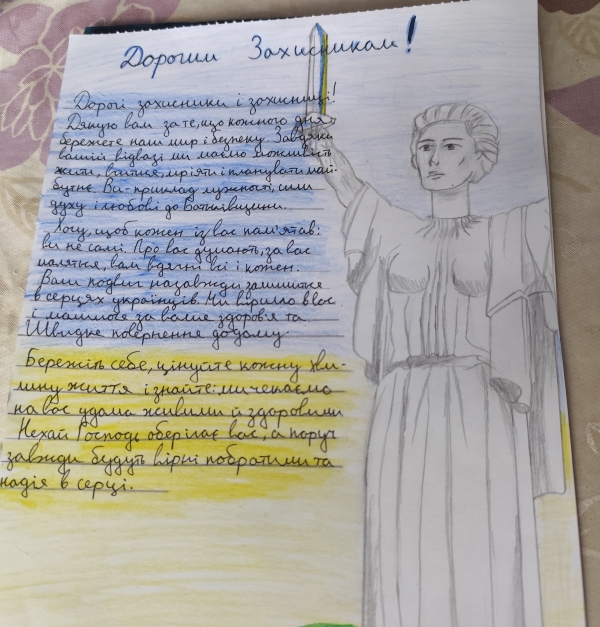 Дорогим Захисникам!
Дорогі захисники і захисниці!
Дякую вам за те, що кожного дня
бережете наш мир і безпеку. Завдяки
вашій відвазі ми маємо можливість
жити, вчитися, мріяти і планувати май-
бутнє. Ви - приклад мужності, сили
духу і любові до Батьківщини.
Хочу, щоб кожен із вас пам'ятав:
ви не самі. Про вас думають, за вас
моляться, вам вдячні всі і кожен.
Ваш подвиг назавжди залишиться
в серцях українців. Ми віримо в вас
і молимося за ваше здоров'я та
Швидке повернення додому.
Бережіть себе, цінуйте кожну хви-
лину життя і знайте: ми чекаємо
на вас удома живими й здоровими
Нехай Господь оберігає вас, а поруч
завжди будуть вірні побратими та
надія в серці.